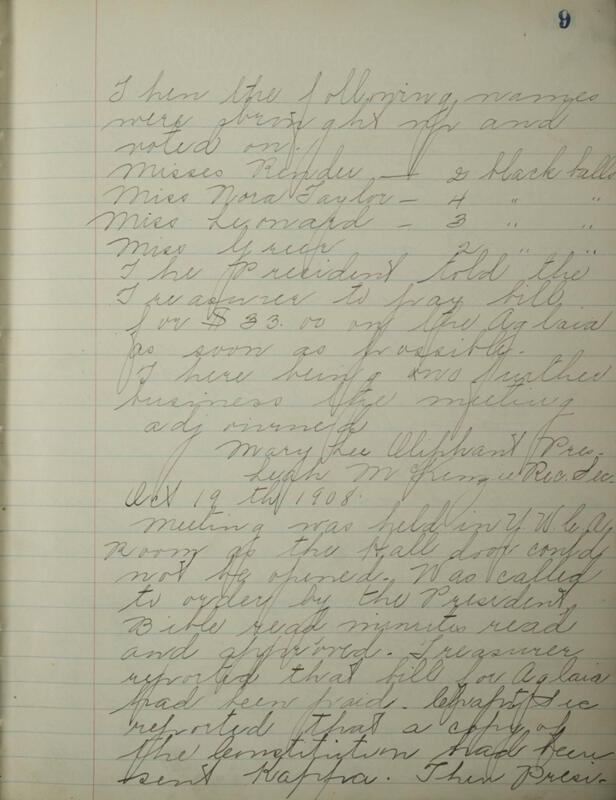 9
Then the following names
were brought up and
voted on.
Misses Render — 2 black balls
Miss Nora Taylor — 4 " "
Miss Leonard — 3 " "
Miss Greer 2 " "
The President told the
Treasurer to pay bill
for $33.00 on the Aglaia
as soon as possible.
There being no further
business the meeting
adjourned
Mary Lee Oliphant Pres.
Leah McKenzie Rec. Sec.
Oct 19th 1908.
Meeting was held in Y.W.C.A.
Room as the Hall door could
not be opened. Was called
to order by the President,
Bible read minutes read
and approved. Treasurer
reported that bill for Aglaia
had been paid. Chapt Sec
reported that a copy of
the constitution had been
sent Kappa. Then Presi-